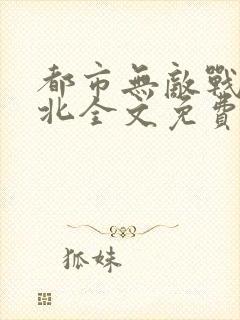 都市無敵戰
北全文免費
狐妹